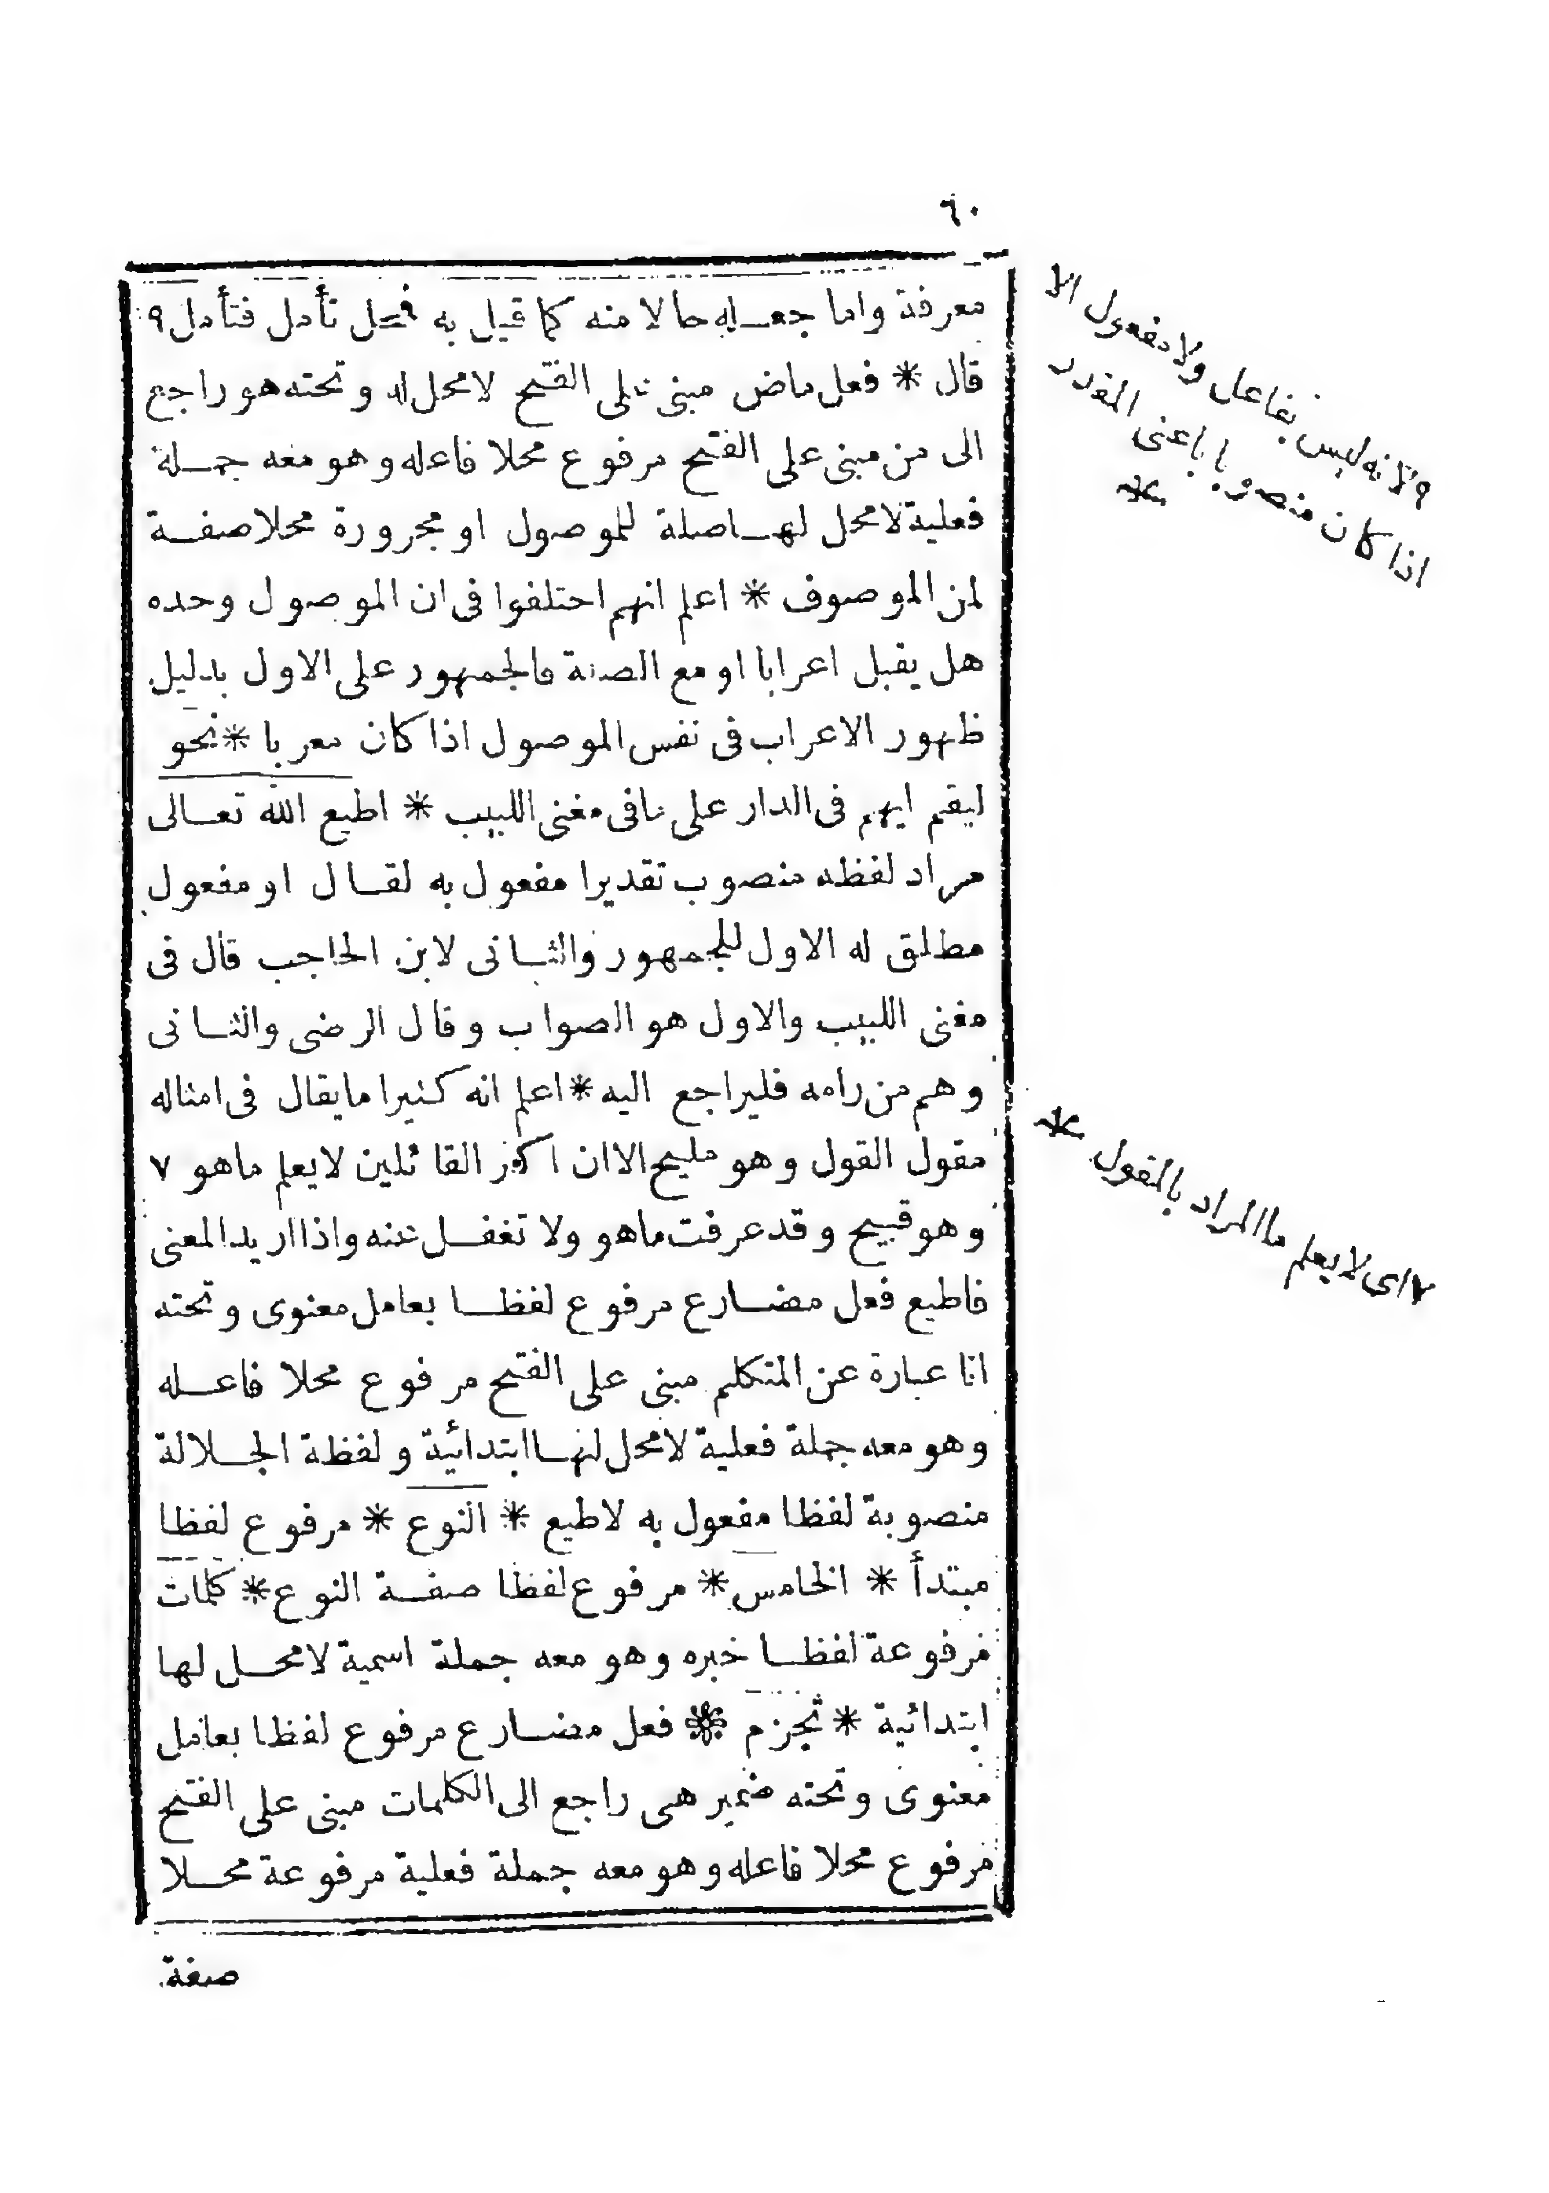 ٦٠
معرفة واما جعله حالا منه كما قيل به فمحل تأمل فتأمل ٩
قال * فعل ماض مبنى على الفتح لامحل له وتحته هو راجع
الى من مبنى على الفتح مرفوع محلا فاعله وهو معه جملة
فعلية لامحل لها صلة للموصول او مجرورة محلا صفة
لمن الموصوف * اعلم انهم احتلفوا فى ان الموصول وحده
هل يقبل اعرابا او مع الصلة فالجمهور على الاول بدليل
ظهور الاعراب فى نفس الموصول اذا كان معربا * نحو
ليقم ايهم فى الدار على مافى مغنى اللبيب * اطيع الله تعالى
مراد لفظه منصوب تقديرا مفعول به لقال او مفعول
مطلق له الاول للجمهور والثانى لابن الحاجب قال فى
مغنى اللبيب والاول هو الصواب وقال الرضى والثانى
وهم من رامه فليراجع اليه * اعلم انه كثيرا مايقال فى امثاله
مقول القول وهو مليح الا ان اكثر القائلين لايعلم ماهو ٧
وهو قبيح وقد عرفت ماهو ولا تغفل عنه واذا اريد المعنى
فاطيع فعل مضارع مرفوع لفظا بعامل معنوى وتحته
انا عبارة عن المتكلم مبنى على الفتح مرفوع محلا فاعله
وهو معه جملة فعلية لامحل لها ابتدائية ولفظة الجلالة
منصوبة لفظا مفعول به لاطيع * النوع * مرفوع لفظا
مبتدأ * الخامس * مرفوع لفظا صفة النوع * كلمات
مرفوعة لفظا خبره وهو معه جملة اسمية لامحل لها
ابتدائية * تجزم * فعل مضارع مرفوع لفظا بعامل
معنوى وتحته ضمير هى راجع الى الكلمات مبنى على الفتح
مرفوع محلا فاعله وهو معه جملة فعلية مرفوعة محلا
صفة
٩ لانه ليس بفاعل ولا مفعول الا
اذا كان منصوبا باعنى المقدر
*
٧ اى لايعلم ما المراد بالمقول *